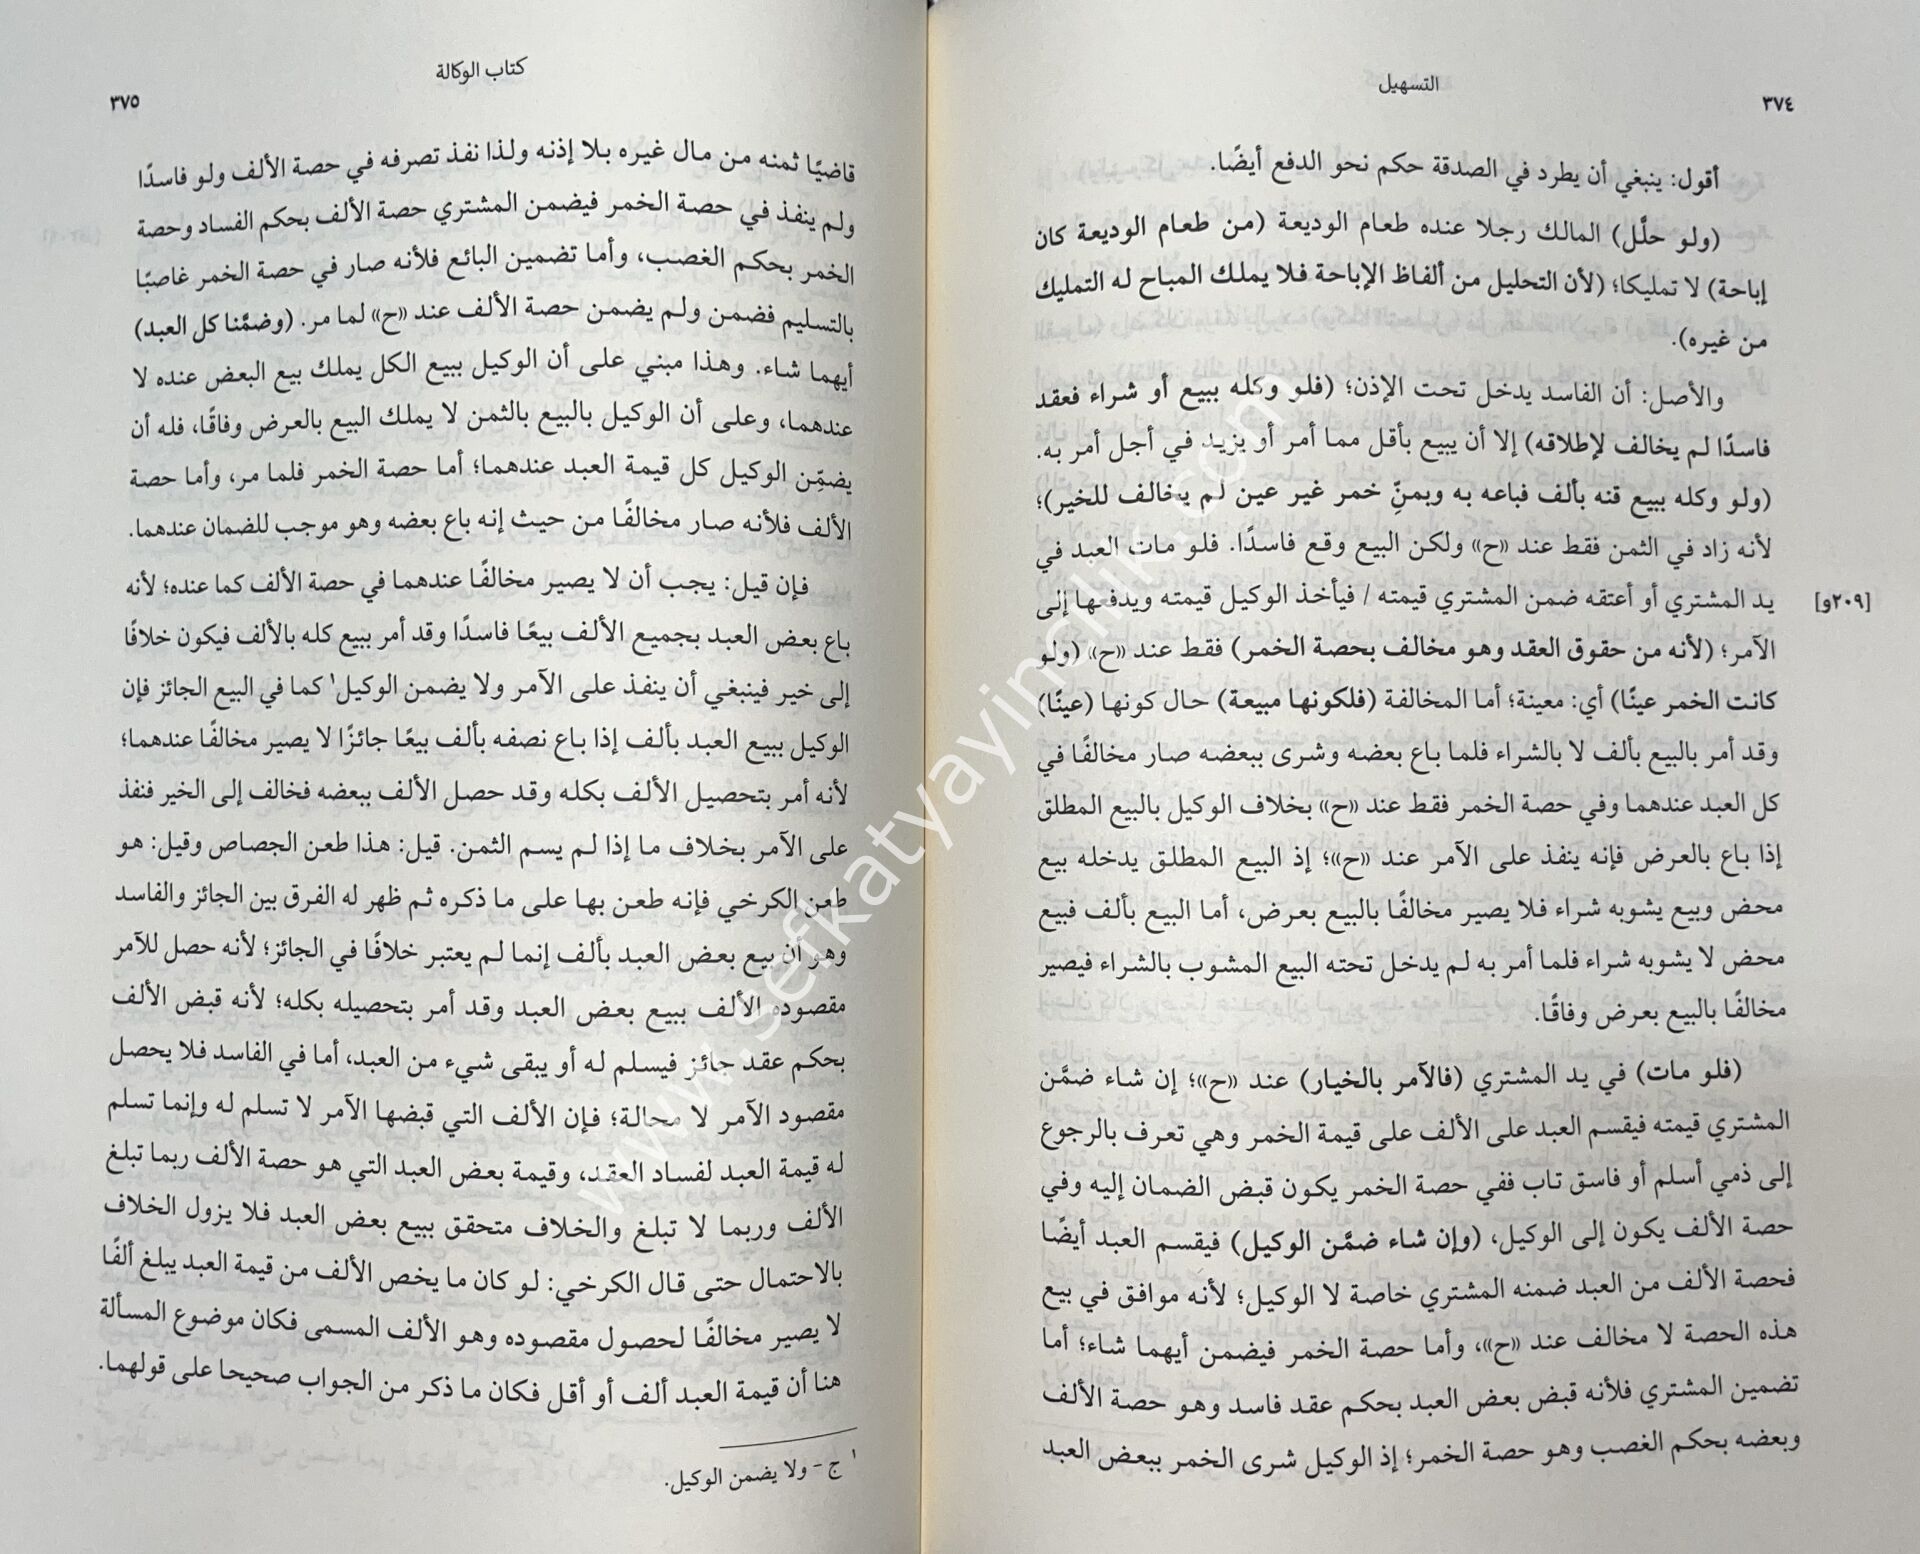 التسهيل
٣٧٤
أقول: ينبغي أن يطرد في الصدقة حكم نحو الدفع أيضًا.
(ولو حلَّل) المالك رجلا عنده طعام الوديعة (من طعام الوديعة كان
إباحة) لا تمليكا؛ (لأن التحليل من ألفاظ الإباحة فلا يملك المباح له التمليك
من غيره).
والأصل: أن الفاسد يدخل تحت الإذن؛ (فلو وكله ببيع أو شراء فعقد
فاسدًا لم يخالف لإطلاقه) إلا أن يبيع بأقل مما أمر أو يزيد في أجل أمر به.
(ولو وكله ببيع قنه بألف فباعه به وبمنِّ خمر غير عين لم يخالف للخير)؛
لأنه زاد في الثمن فقط عند «ح» ولكن البيع وقع فاسدًا. فلو مات العبد في
يد المشتري أو أعتقه ضمن المشتري قيمته / فيأخذ الوكيل قيمته ويدفعها إلى
[٢٠٩و]
الآمر؛ (لأنه من حقوق العقد وهو مخالف بحصة الخمر) فقط عند «ح» (ولو
كانت الخمر عينًا) أي: معينة؛ أما المخالفة (فلكونها مبيعة) حال كونها (عينًا)
وقد أمر بالبيع بألف لا بالشراء فلما باع بعضه وشرى ببعضه صار مخالفًا في
كل العبد عندهما وفي حصة الخمر فقط عند «ح» بخلاف الوكيل بالبيع المطلق
إذا باع بالعرض فإنه ينفذ على الآمر عند «ح»؛ إذ البيع المطلق يدخله بيع
محض وبيع يشوبه شراء فلا يصير مخالفًا بالبيع بعرض، أما البيع بألف فبيع
محض لا يشوبه شراء فلما أمر به لم يدخل تحته البيع المشوب بالشراء فيصير
مخالفًا بالبيع بعرض وفاقًا.
(فلو مات) في يد المشتري (فالآمر بالخيار) عند «ح»؛ إن شاء ضمَّن
المشتري قيمته فيقسم العبد على الألف على قيمة الخمر وهي تعرف بالرجوع
إلى ذمي أسلم أو فاسق تاب ففي حصة الخمر يكون قبض الضمان إليه وفي
حصة الألف يكون إلى الوكيل، (وإن شاء ضمَّن الوكيل) فيقسم العبد أيضًا
فحصة الألف من العبد ضمنه المشتري خاصة لا الوكيل؛ لأنه موافق في بيع
هذه الحصة لا مخالف عند «ح»، وأما حصة الخمر فيضمن أيهما شاء؛ أما
تضمين المشتري فلأنه قبض بعض العبد بحكم عقد فاسد وهو حصة الألف
وبعضه بحكم الغصب وهو حصة الخمر؛ إذ الوكيل شرى الخمر ببعض العبد
كتاب الوكالة
٣٧٥
قاضيًا ثمنه من مال غيره بلا إذنه ولذا نفذ تصرفه في حصة الألف ولو فاسدًا
ولم ينفذ في حصة الخمر فيضمن المشتري حصة الألف بحكم الفساد وحصة
الخمر بحكم الغصب، وأما تضمين البائع فلأنه صار في حصة الخمر غاصبًا
بالتسليم فضمن ولم يضمن حصة الألف عند «ح» لما مر. (وضمَّنا كل العبد)
أيهما شاء. وهذا مبني على أن الوكيل ببيع الكل يملك بيع البعض عنده لا
عندهما، وعلى أن الوكيل بالبيع بالثمن لا يملك البيع بالعرض وفاقًا، فله أن
يضمِّن الوكيل كل قيمة العبد عندهما؛ أما حصة الخمر فلما مر، وأما حصة
الألف فلأنه صار مخالفًا من حيث إنه باع بعضه وهو موجب للضمان عندهما.
فإن قيل: يجب أن لا يصير مخالفًا عندهما في حصة الألف كما عنده؛ لأنه
باع بعض العبد بجميع الألف بيعًا فاسدًا وقد أمر ببيع كله بالألف فيكون خلافًا
إلى خير فينبغي أن ينفذ على الآمر ولا يضمن الوكيل١ كما في البيع الجائز فإن
الوكيل ببيع العبد بألف إذا باع نصفه بألف بيعًا جائزًا لا يصير مخالفًا عندهما؛
لأنه أمر بتحصيل الألف بكله وقد حصل الألف ببعضه فخالف إلى الخير فنفذ
على الآمر بخلاف ما إذا لم يسم الثمن. قيل: هذا طعن الجصاص وقيل: هو
طعن الكرخي فإنه طعن بها على ما ذكره ثم ظهر له الفرق بين الجائز والفاسد
وهو أن بيع بعض العبد بألف إنما لم يعتبر خلافًا في الجائز؛ لأنه حصل للآمر
مقصوده الألف ببيع بعض العبد وقد أمر بتحصيله بكله؛ لأنه قبض الألف
بحكم عقد جائز فيسلم له أو يبقى شيء من العبد، أما في الفاسد فلا يحصل
مقصود الآمر لا محالة؛ فإن الألف التي قبضها الآمر لا تسلم له وإنما تسلم
له قيمة العبد لفساد العقد، وقيمة بعض العبد التي هو حصة الألف ربما تبلغ
الألف وربما لا تبلغ والخلاف متحقق ببيع بعض العبد فلا يزول الخلاف
بالاحتمال حتى قال الكرخي: لو كان ما يخص الألف من قيمة العبد يبلغ ألفًا
لا يصير مخالفًا لحصول مقصوده وهو الألف المسمى فكان موضوع المسألة
هنا أن قيمة العبد ألف أو أقل فكان ما ذكر من الجواب صحيحا على قولهما.
١ ج - ولا يضمن الوكيل.
www.sefkatyayincilik.com